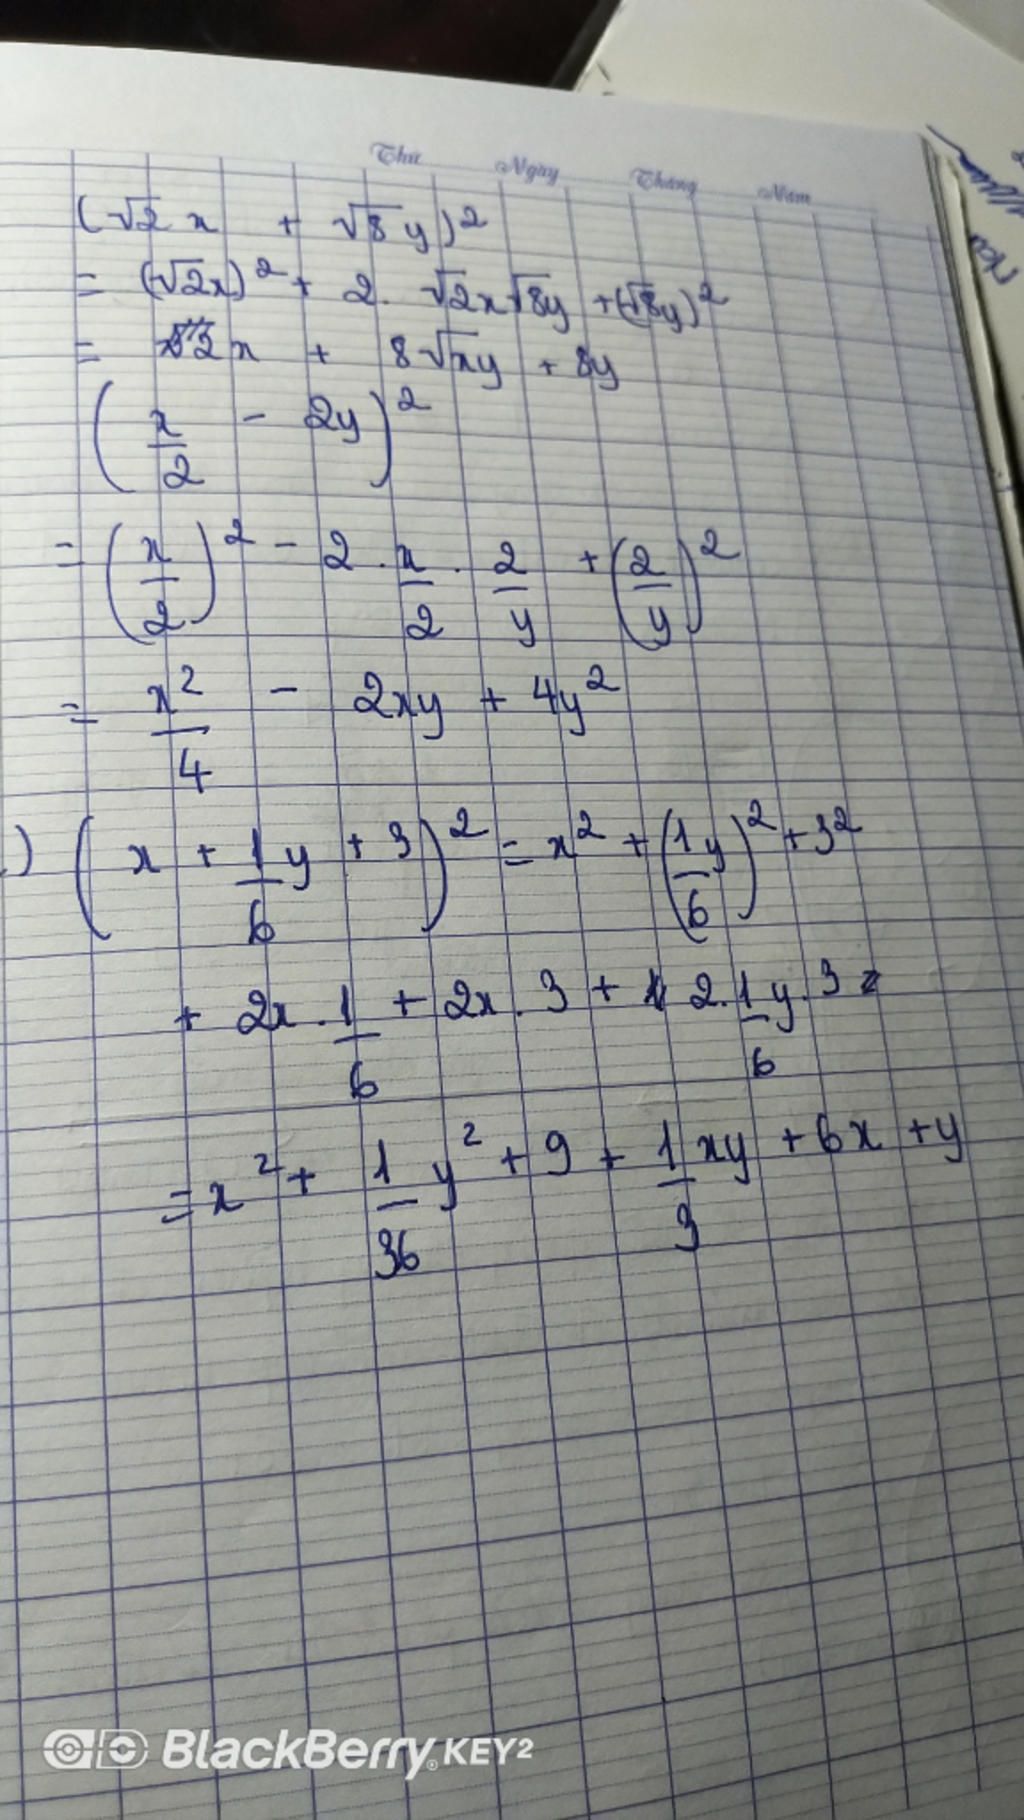 Thứ Ngày Tháng Năm
(√2 x + √8 y)²
= (√2x)² + 2. √2x√8y + (√8y)²
= 2x + 8√xy + 8y
(x/2 - 2y)²
= (x/2)² - 2 . x/2 . 2/y + (2/y)²
= x²/4 - 2xy + 4y²
) (x + 1/6 y + 3)² = x² + (1/6 y)² + 3²
+ 2x . 1/6 + 2x . 3 + 2. 1/6 y . 3
= x² + 1/36 y² + 9 + 1/3 xy + 6x + y
BlackBerry® KEY2